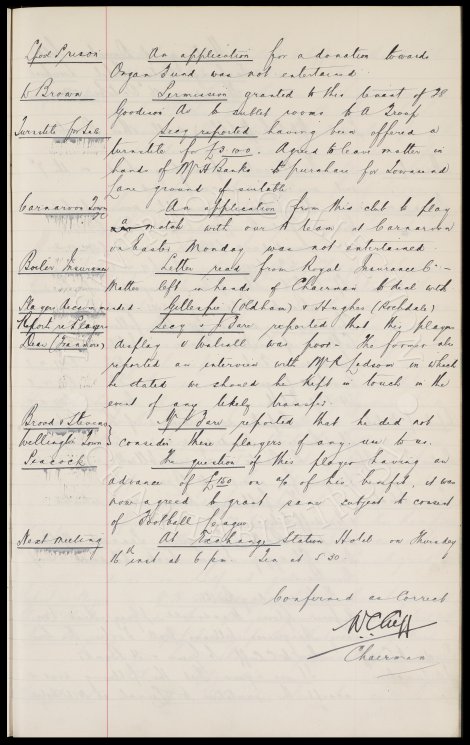 L'pool Prison An application for a donation towards
Organ Fund was not entertained.
W Brown Permission granted to this tenant of 78
Goodison Av to sublet rooms to A Troup
Turnstile for Sale Secy reported having been offered a
turnstile for £3.10.0. Agreed to leave matter in
hands of Mr H Banks to purchase for Townsend
Lane ground if suitable
Carnarvon Town An application from this club to play
a match with our A team at Carnarvon
on Easter Monday was not entertained
Boiler Insurance Letter read from Royal Insurance Co -
Matter left in hands of Chairman to deal with
Players recommended - Gillespie (Oldham) & Hughes (Rochdale)
Report re Players Secy & J Fare reported that this players
Dean (Tranmere) display v Walsall was poor - The former also
reported an interview with Mr R Ledsom in which
he stated we should be kept in touch in the
event of any likely transfer.
Brood & Stevens Mr J Fare reported that he did not
Wellington Town consider these players of any use to us.
Peacock The question of this player having an
advance of £150 on a/c of his benefit, it was
now agreed to grant same subject to consent
of Football League
Next Meeting At Exchange Station Hotel on Thursday
16th inst at 6 pm. Tea at 5.30.
Confirmed as Correct
W.C. Cuff
Chairman